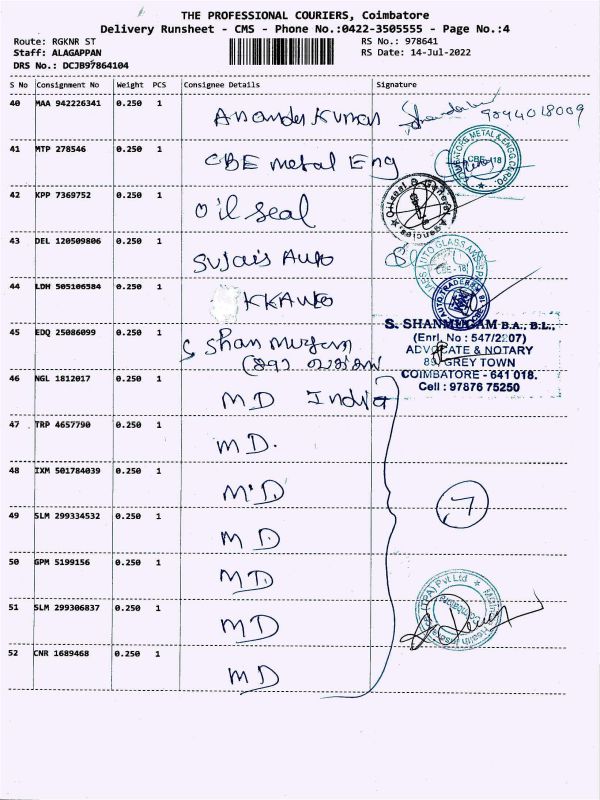 THE PROFESSIONAL COURIERS, Coimbatore
Delivery Runsheet - CMS - Phone No.:0422-3505555 - Page No.:4
Route: RGKNR ST
RS No.: 978641
Staff: ALAGAPPAN
RS Date: 14-Jul-2022
DRS No.: DCJB97864104
S No Consignment No Weight PCS Consignee Details Signature
40 MAA 942226341 0.250 1 Ananda Kumar
41 MTP 278546 0.250 1 CBE metal Eng
CBE-18
42 KPP 7369752 0.250 1 Oil Seal
Oilseal & General Agencies
43 DEL 120509806 0.250 1 Sujais Auto
CBE - 18
44 LDH 505106584 0.250 1 KKAuto
45 EDQ 25086099 0.250 1 S Shanmugam
S. SHANMUGAM B.A., B.L.,
(Enrl. No : 547/2207)
ADVOCATE & NOTARY
89, GREY TOWN
COIMBATORE - 641 018.
Cell : 97876 75250
46 NGL 1812017 0.250 1 MD India
47 TRP 4657790 0.250 1 MD.
48 IXM 501784039 0.250 1 MD
49 SLM 299334532 0.250 1 MD
7
50 GPM 5199156 0.250 1 MD
51 SLM 299306837 0.250 1 MD
(TPA) Pvt Ltd
Coimbatore
52 CNR 1689468 0.250 1 MD